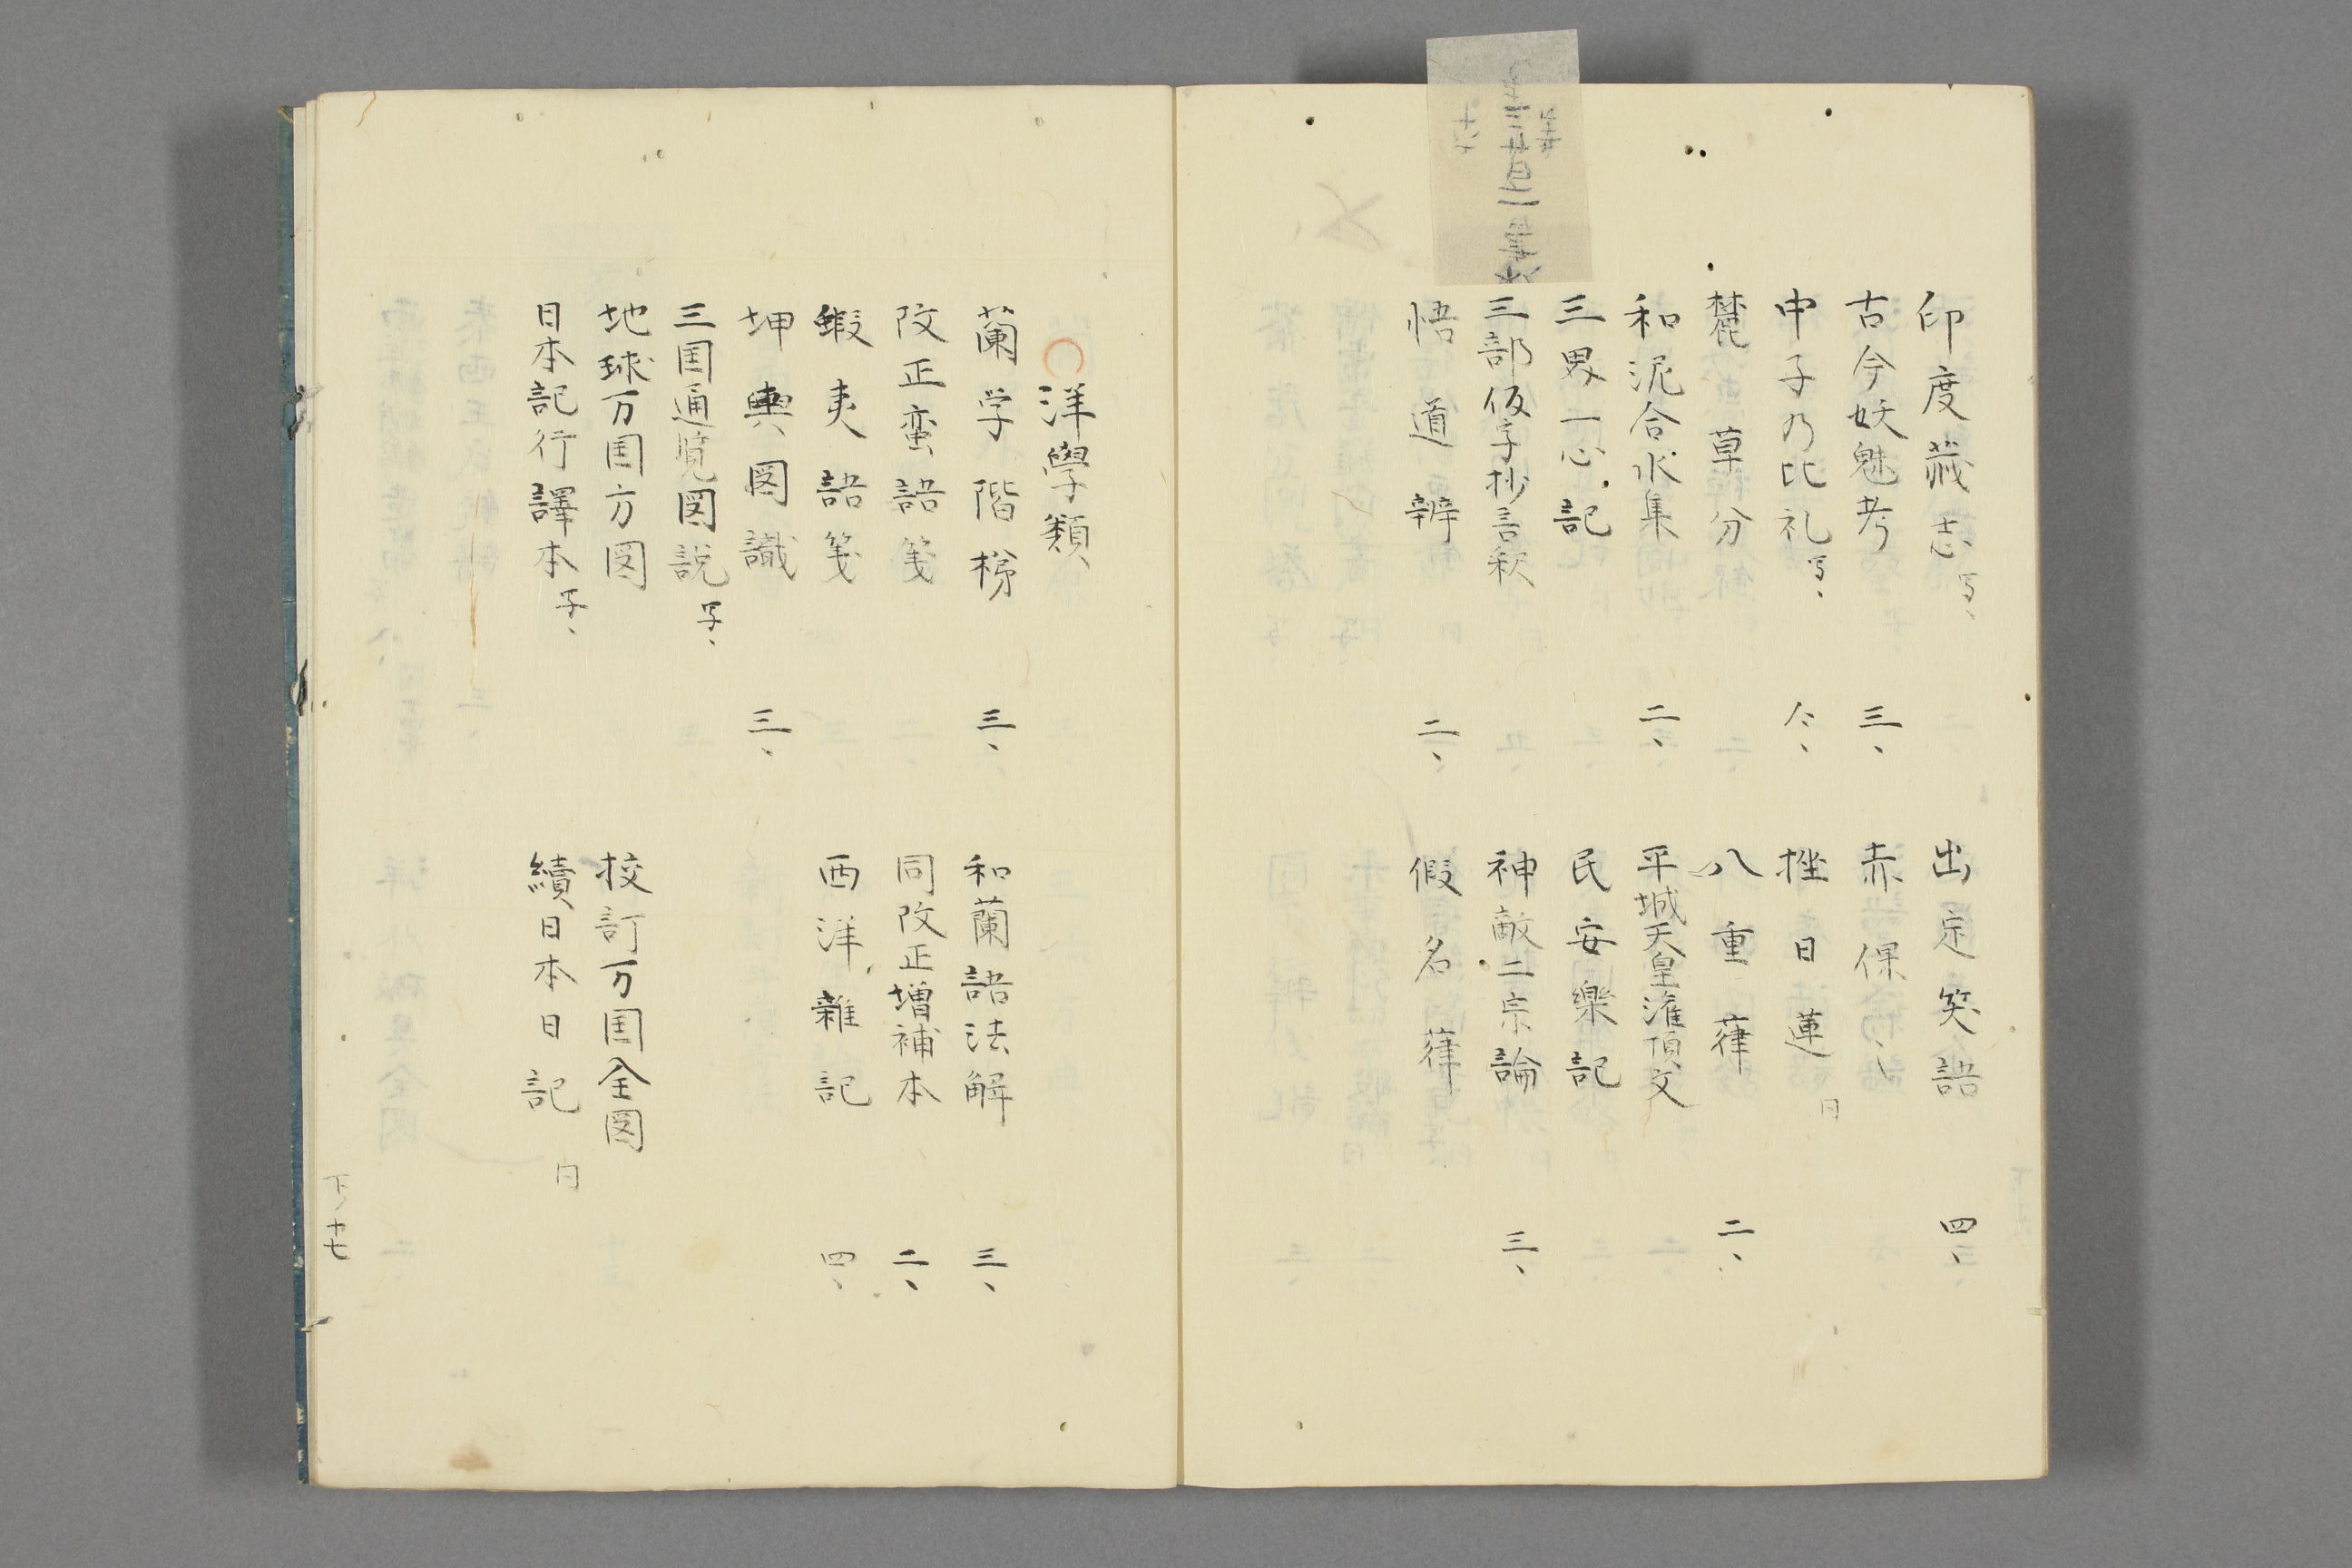 印度蔵志 写、
出定笑語 四、
古今妖魅考 三、
赤倮々
巾子乃比礼 写、 仁、
挫日蓮 同
麓草分
八重葎 二、
和泥合水集 二、
平城天皇潅頂文
三界一心記
民安樂記
三部仮字抄言釈
神敵二宗論 三、
悟道辨 二、
假名葎
洋學類
蘭学階梯 三、
和蘭語法解 三、
改正蛮語箋
同改正増補本 二、
蝦夷語箋
西洋雜記 四、
坤輿図識 三、
三国通覧図説 写、
地球万国方図
校訂万国全図
日本記行譯本 写、
續日本日記 同
下ノ十七